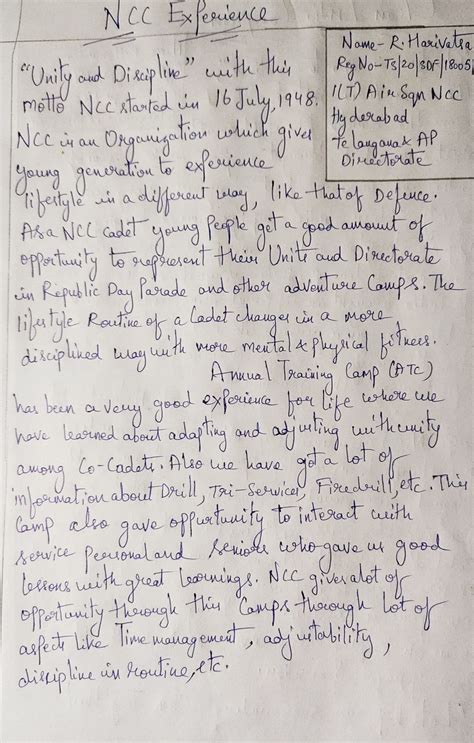 NCC Experience
Name- R. Harivatsa
Reg No- TS/20/SDF/18005
1(T) Air Sqn NCC
Hyderabad
Telangana & AP
Directorate
"Unity and Discipline" with this
motto NCC started in 16 July, 1948.
NCC is an Organization which gives
young generation to experience
lifestyle in a different way, like that of Defence.
As a NCC cadet young People get a good amount of
opportunity to represent their Units and Directorate
in Republic Day Parade and other adventure Camps. The
lifestyle Routine of a Cadet changes in a more
disciplined way with more mental & physical fitness.
Annual Training Camp (ATC)
has been a very good experience for life where we
have learned about adapting and adjusting with unity
among Co-Cadets. Also we have got a lot of
information about Drill, Tri-Services, Firedrill, etc. This
Camp also gave oppurtunity to interact with
service personal and Seniors who gave us good
lessons with great learnings. NCC gives alot of
opportunity through this Camps through lot of
aspects like Time management, adjustability,
discipline in routine, etc.